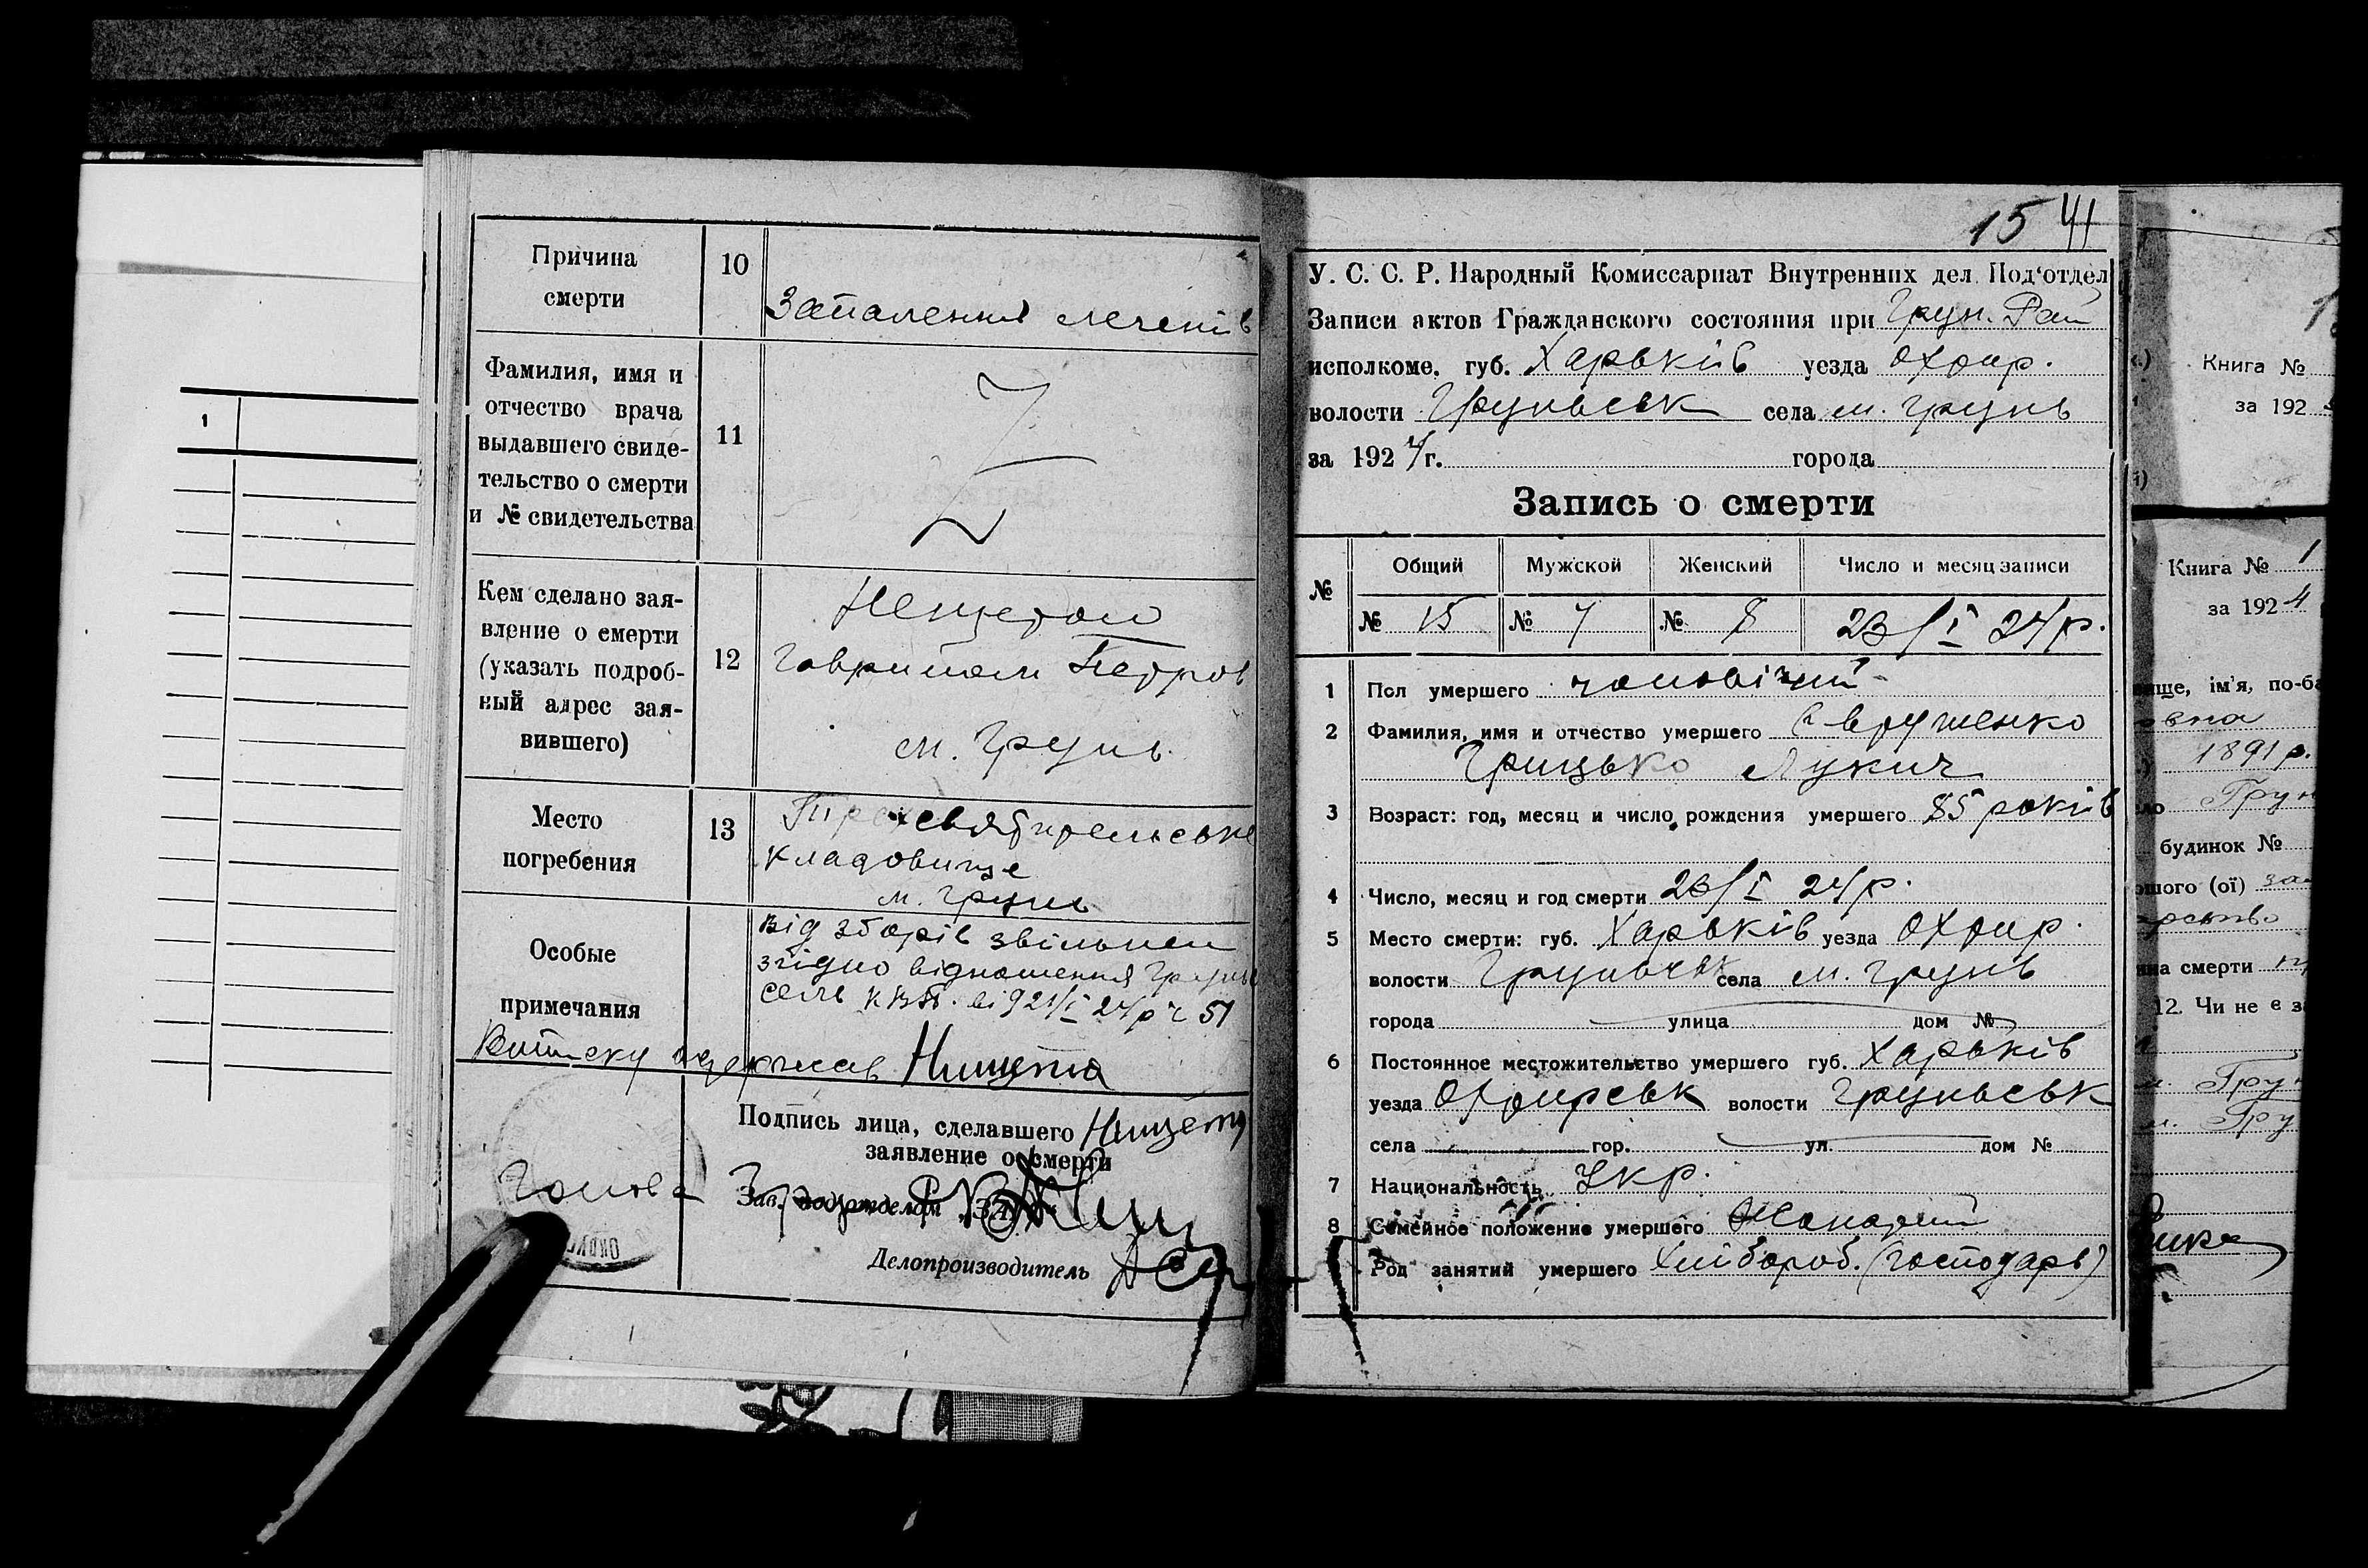 1
Причина
смерти
10
Запалення легенів
Фамилия, имя и
отчество врача
выдавшего свиде-
тельство о смерти
и № свидетельства
11
Кем сделано зая-
вление о смерти
(указать подроб-
ный адрес зая-
вившего)
12
Гаврилом Петров
м. Грунь
Место
погребения
13
кладовище
м. Грунь
Особые
примечания
від зборів звільнен
згідно відношення
від 21/I 24р ч 51
Виписку одержав Нищета
Подпись лица, сделавшего Нищета
заявление о смерти
Голова
Зав. подотделом
Делопроизводитель
15 41
У. С. С. Р. Народный Комиссариат Внутренних дел Под'отдел
Записи актов Гражданского состояния при Грун. Рай
исполкоме, губ. Харьків уезда Охтир.
волости Груньськ села м. Грунь
за 1924 г. города
Запись о смерти
№ Общий Мужской Женский Число и месяц записи
№ 15 № 7 № 8 23/I 24р.
1 Пол умершего чоловічий
2 Фамилия, имя и отчество умершего Єврушенко
Грицько Лукич
3 Возраст: год, месяц и число рождения умершего 85 років
4 Число, месяц и год смерти 23/I 24р.
5 Место смерти: губ. Харьків уезда Охтир.
волости Груньськ села м. Грунь
города улица дом №
6 Постоянное местожительство умершего губ. Харьків
уезда Охтирськ волости Груньськ
села гор. ул. дом №
7 Национальность Укр.
8 Семейное положение умершего Жонатий
Род занятий умершего Хлібороб. (господарь)
Книга №
за 192
Книга № 1
за 1924
ім'я, по-ба
1891 р.
Грун
будинок №
(ої)
смерти
12. Чи не є з
м. Грун
м. Гру